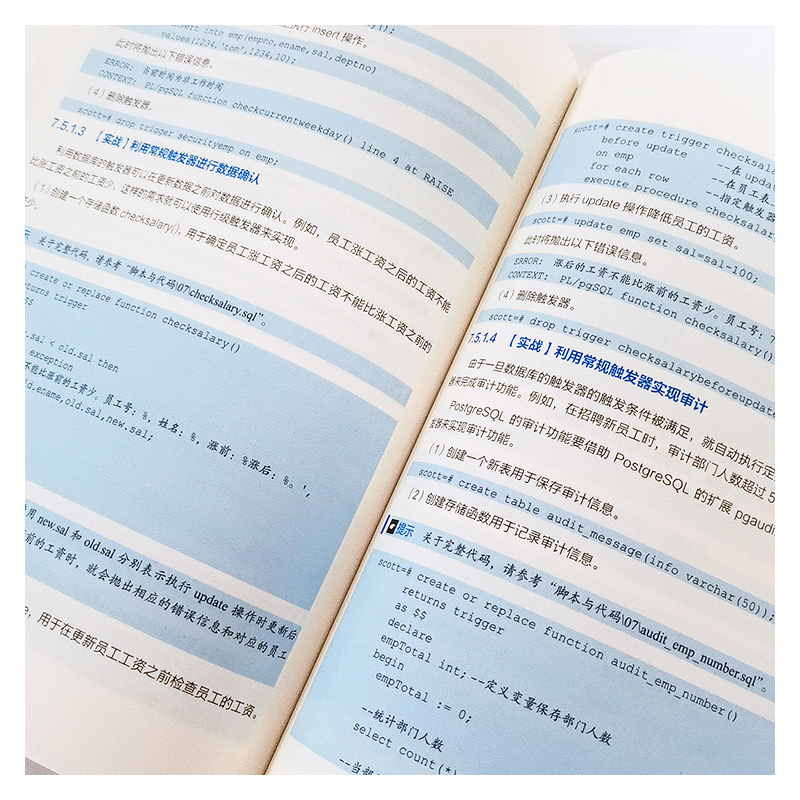 insert into emp(empno,ename,sal,deptno)
执行 insert 操作。
values(1234,'tom',1234,10);
此时将抛出以下错误信息。
ERROR: 当前时间为非工作时间
CONTEXT: PL/pgSQL function checkcurrentweekday() line 4 at RAISE
（4）删除触发器。
scott=# drop trigger securityemp on emp;
7.5.1.3 【实战】利用常规触发器进行数据确认
利用数据库的触发器可以在更新数据之前对数据进行确认。例如，员工涨工资之后的工资不能
比涨工资之前的工资少。这样的需求就可以使用行级触发器来实现。
（1）创建一个存储函数 checksalary()，用于确定员工涨工资之后的工资不能比涨工资之前的
少。
示 关于完整代码，请参考“脚本与代码\07\checksalary.sql”。
create or replace function checksalary()
returns trigger
$$
.sal < old.sal then
exception
不能比涨前的工资少。员工号：%, 姓名：%, 涨前：%涨后：%。',
ld.ename,old.sal,new.sal;
用 new.sal 和 old.sal 分别表示执行 update 操作时更新后
前的工资时，就会抛出相应的错误信息和对应的员工
，用于在更新员工工资之前检查员工的工资。
scott=# create trigger checksala
before update --在updat
on emp --在员工表
for each row --指定触发器
execute procedure checksalar
（3）执行 update 操作降低员工的工资。
scott=# update emp set sal=sal-100;
此时将抛出以下错误信息。
ERROR: 涨后的工资不能比涨前的工资少。员工号：7
CONTEXT: PL/pgSQL function checksalary()
（4）删除触发器。
scott=# drop trigger checksalarybeforeupdate
7.5.1.4 【实战】利用常规触发器实现审计
由于一旦数据库的触发器的触发条件被满足，就自动执行定
器来完成审计功能。例如，在招聘新员工时，审计部门人数超过 5
PostgreSQL 的审计功能要借助 PostgreSQL 的扩展 pgaudi
发器来实现审计功能。
（1）创建一个新表用于保存审计信息。
scott=# create table audit_message(info varchar(50));
（2）创建存储函数用于记录审计信息。
提示 关于完整代码，请参考“脚本与代码\07\audit_emp_number.sql”。
scott=# create or replace function audit_emp_number()
returns trigger
as $$
declare
empTotal int; --定义变量保存部门人数
begin
empTotal := 0;
--统计部门人数
select count(*)